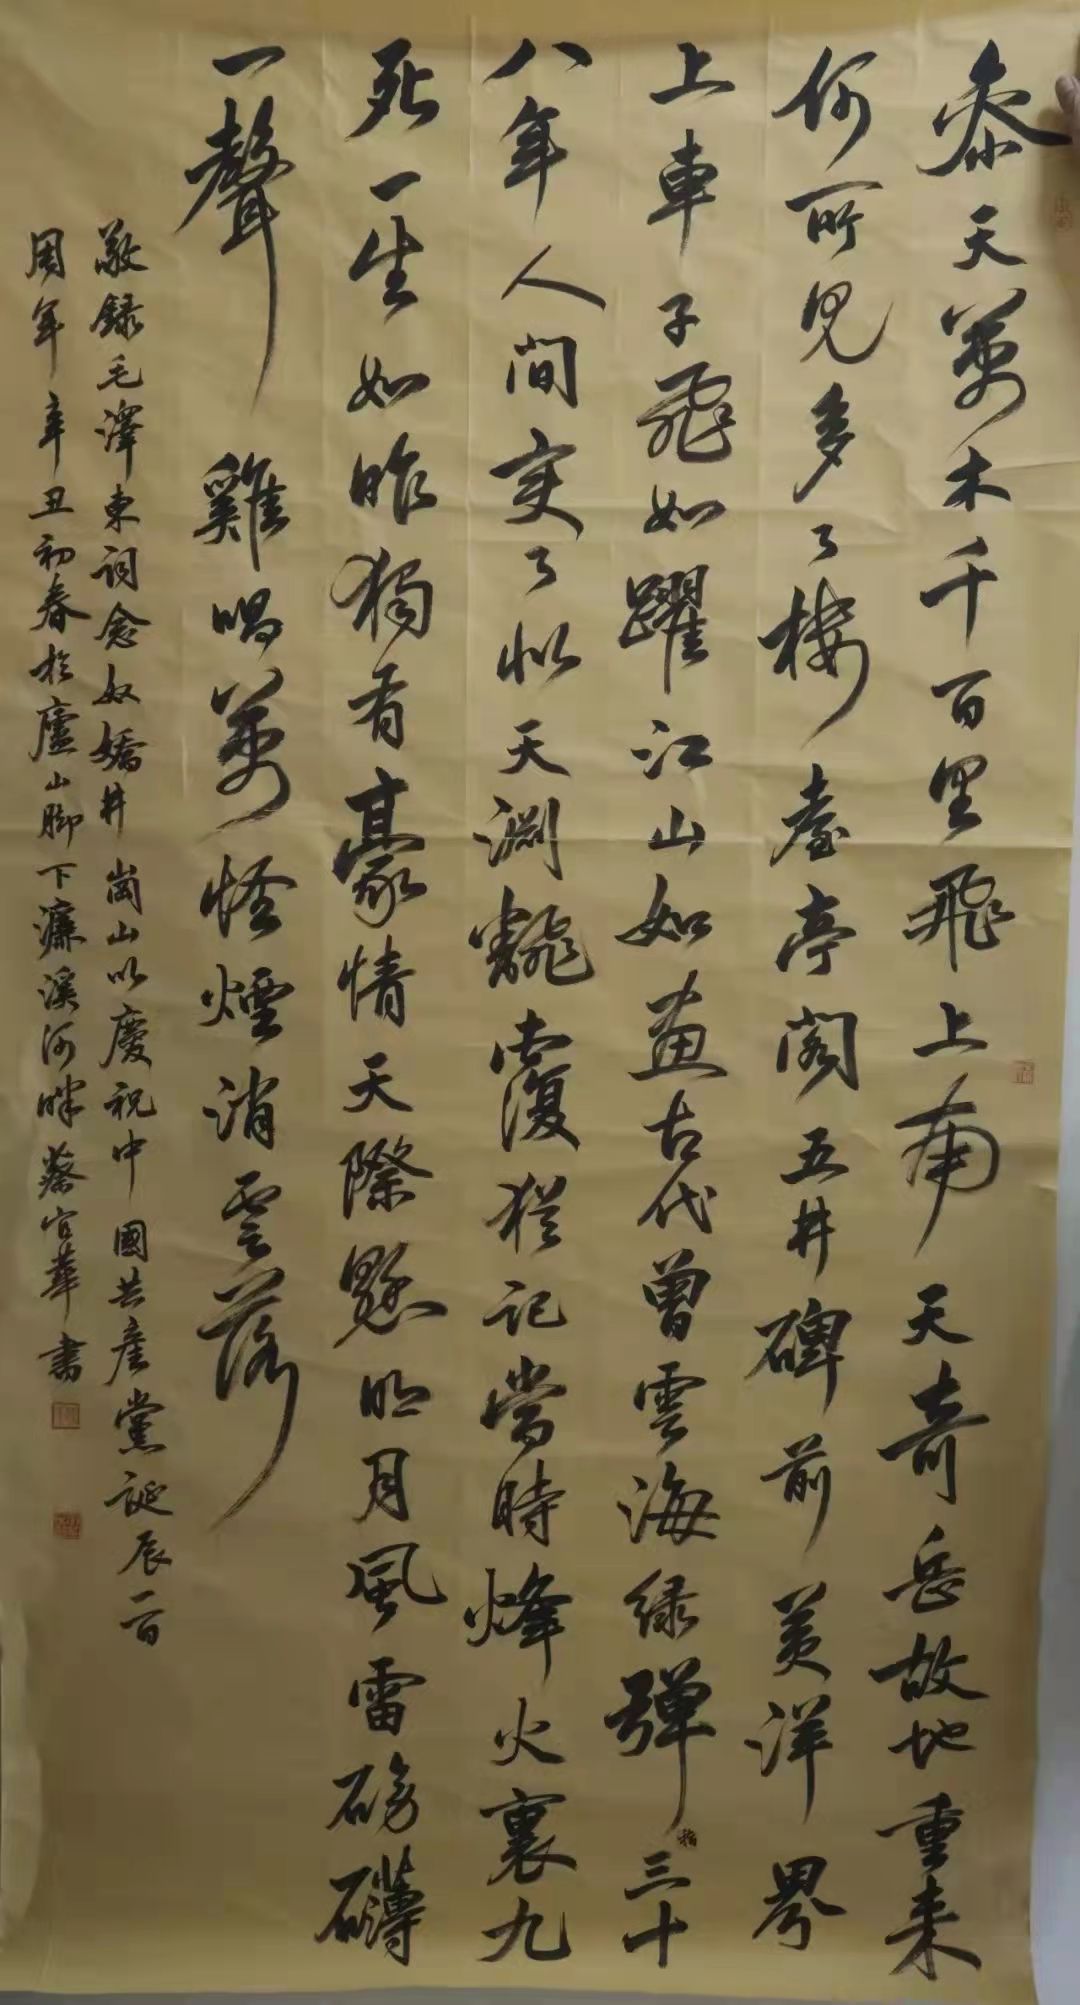 参天萬木千百里飛上南天奇岳故地重来
何所見多了樓臺亭閣五井碑前黄洋界
上車子飛如躍江山如画古代曾雲海緑彈指三十
八年人間变了似天渊飜覆犹记當時烽火裏九
死一生如昨獨有豪情天際懸明月風雷磅礴
一聲雞唱萬怪煙消雲落
敬録毛澤東詞念奴嬌井崗山以慶祝中國共産黨誕辰一百
周年辛丑初春於廬山脚下濂溪河畔蔡官華書